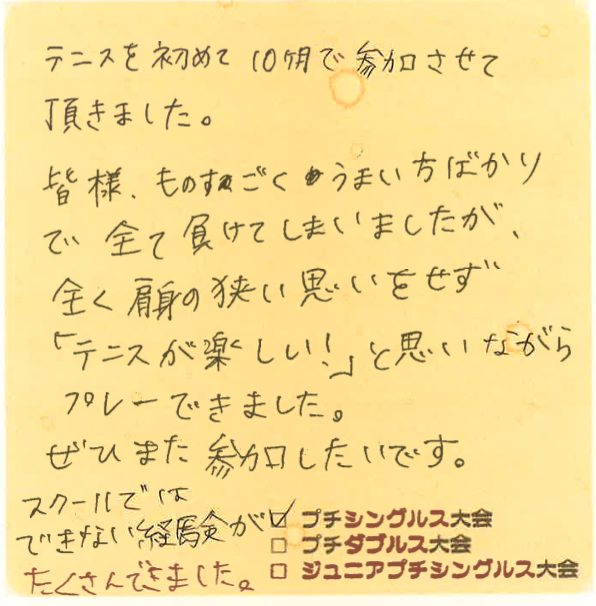 テニスを初めて10ヶ月で参加させて
頂きました。
皆様、ものすごくうまい方ばかり
で全て負けてしまいましたが、
全く肩身の狭い思いをせず
「テニスが楽しい！」と思いながら
プレーできました。
ぜひまた参加したいです。
スクールでは
できない経験が
たくさんできました。
☑ プチシングルス大会
□ プチダブルス大会
□ ジュニアプチシングルス大会